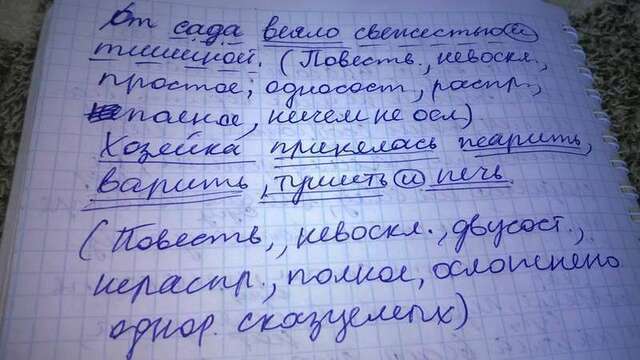 От сада веяло свежестью и
тишиной. (Повеств., невоскл.,
простое, односост., распр.,
полное, ничем не осл.)
Хозяйка принялась жарить,
варить, тушить и печь.
(Повеств., невоскл., двусост.,
нераспр., полное, осложнено
однор. сказуемых)